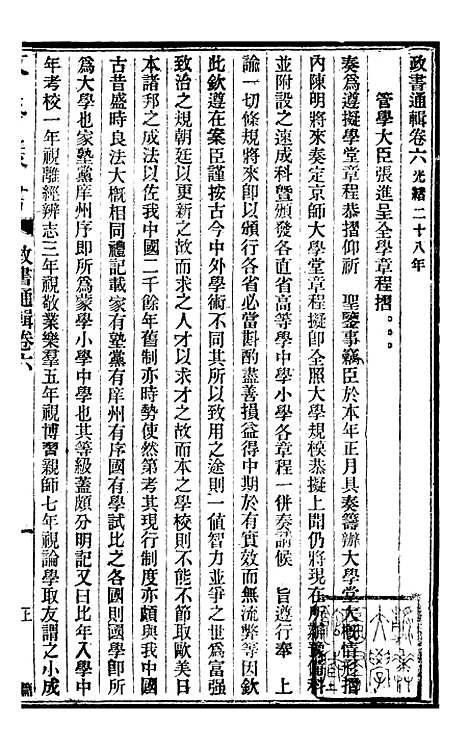 政書通輯卷六 光緒二十八年
管學大臣張進呈全學章程摺
奏爲遵擬學堂章程恭摺仰祈　聖鑒事竊臣於本年正月具奏籌辦大學堂大概情形摺
內陳明將來奏定京師大學堂章程擬卽全照大學規模恭擬上聞仍將現在所辦豫備科
並附設之速成科暨頒發各直省高等學中學小學各章程一併奏請候　旨遵行奉　上
諭一切條規將來卽以頒行各省必當斟酌盡善損益得中期於有實效而無流弊等因欽
此欽遵在案臣謹按古今中外學術不同其所以致用之途則一値智力並爭之世爲富强
致治之規朝廷以更新之故而求之人才以求才之故而本之學校則不能不節取歐美日
本諸邦之成法以佐我中國二千餘年舊制亦時勢使然第考其現行制度亦頗與我中國
古昔盛時良法大槪相同禮記載家有塾黨有庠州有序國有學試比之各國則國學卽所
爲大學也家塾黨庠州序卽所爲蒙學小學中學也其等級蓋頗分明記又曰比年入學中
年考校一年視離經辨志三年視敬業樂羣五年視博習親師七年視論學取友謂之小成
政書通輯卷六
一